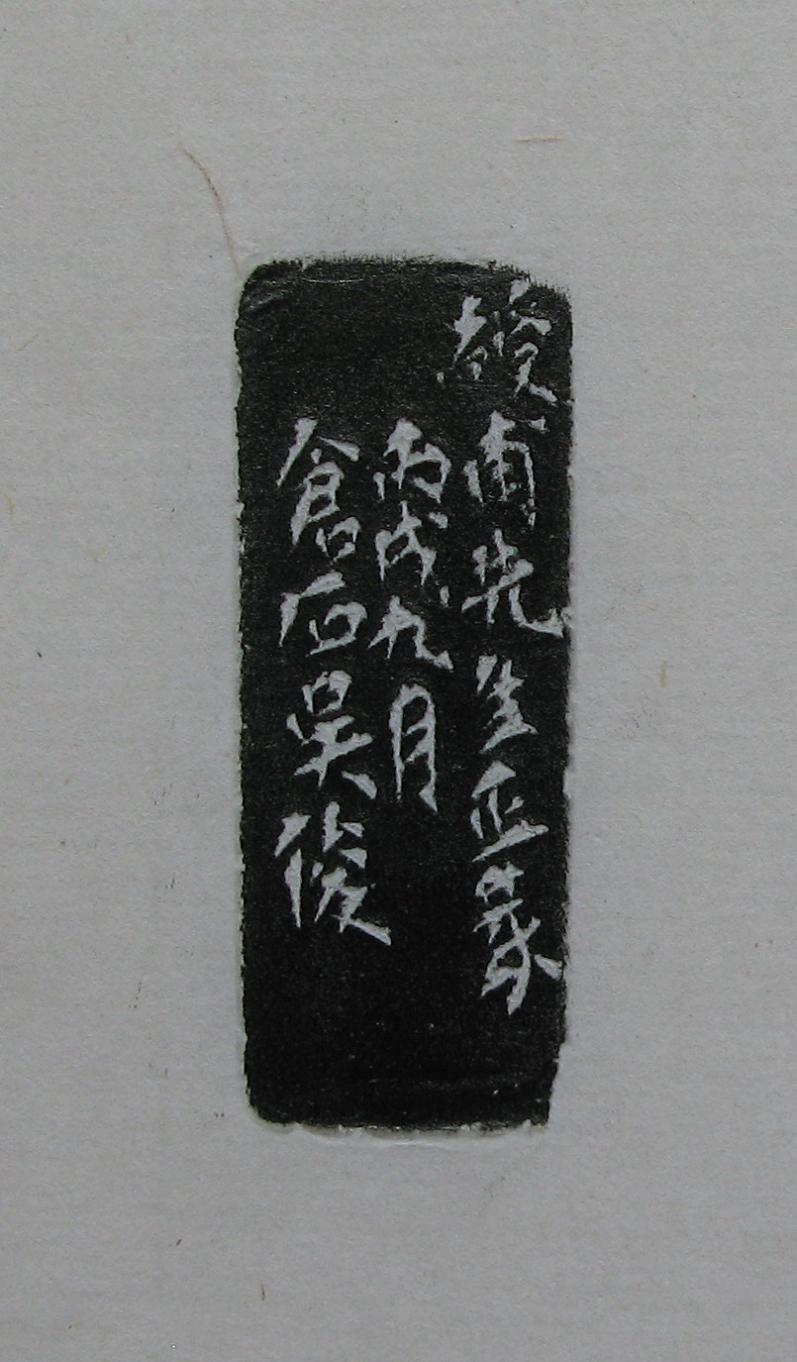 馥甫先生正篆
丙戌九月
倉石吳俊